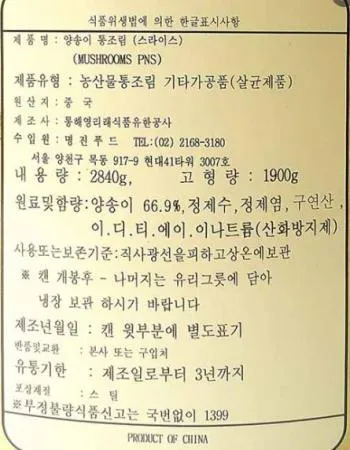 식품위생법에 의한 한글표시사항
제 품 명 : 양송이 통조림 (스라이스)
(MUSHROOMS PNS)
제품유형 : 농산물통조림 기타가공품(살균제품)
원 산 지 : 중 국
제 조 사 : 통해영리래식품유한공사
수 입 원 : 명 진 푸 드 TEL:(02) 2168-3180
서울 양천구 목동 917-9 현대41타워 3007호
내 용 량 : 2840g, 고 형 량 : 1900g
원료및함량:양송이 66.9%,정제수,정제염,구연산,
이.디.티.에이.이나트륨(산화방지제)
사용또는보존기준:직사광선을피하고상온에보관
※ 캔 개봉후 - 나머지는 유리그릇에 담아
냉장 보관 하시기 바랍니다
제조년월일 : 캔 윗부분에 별도표기
반품및교환 : 본사 또는 구입처
유통기한 : 제조일로부터 3년까지
포장재질 : 스 틸
※부정불량식품신고는 국번없이 1399
PRODUCT OF CHINA